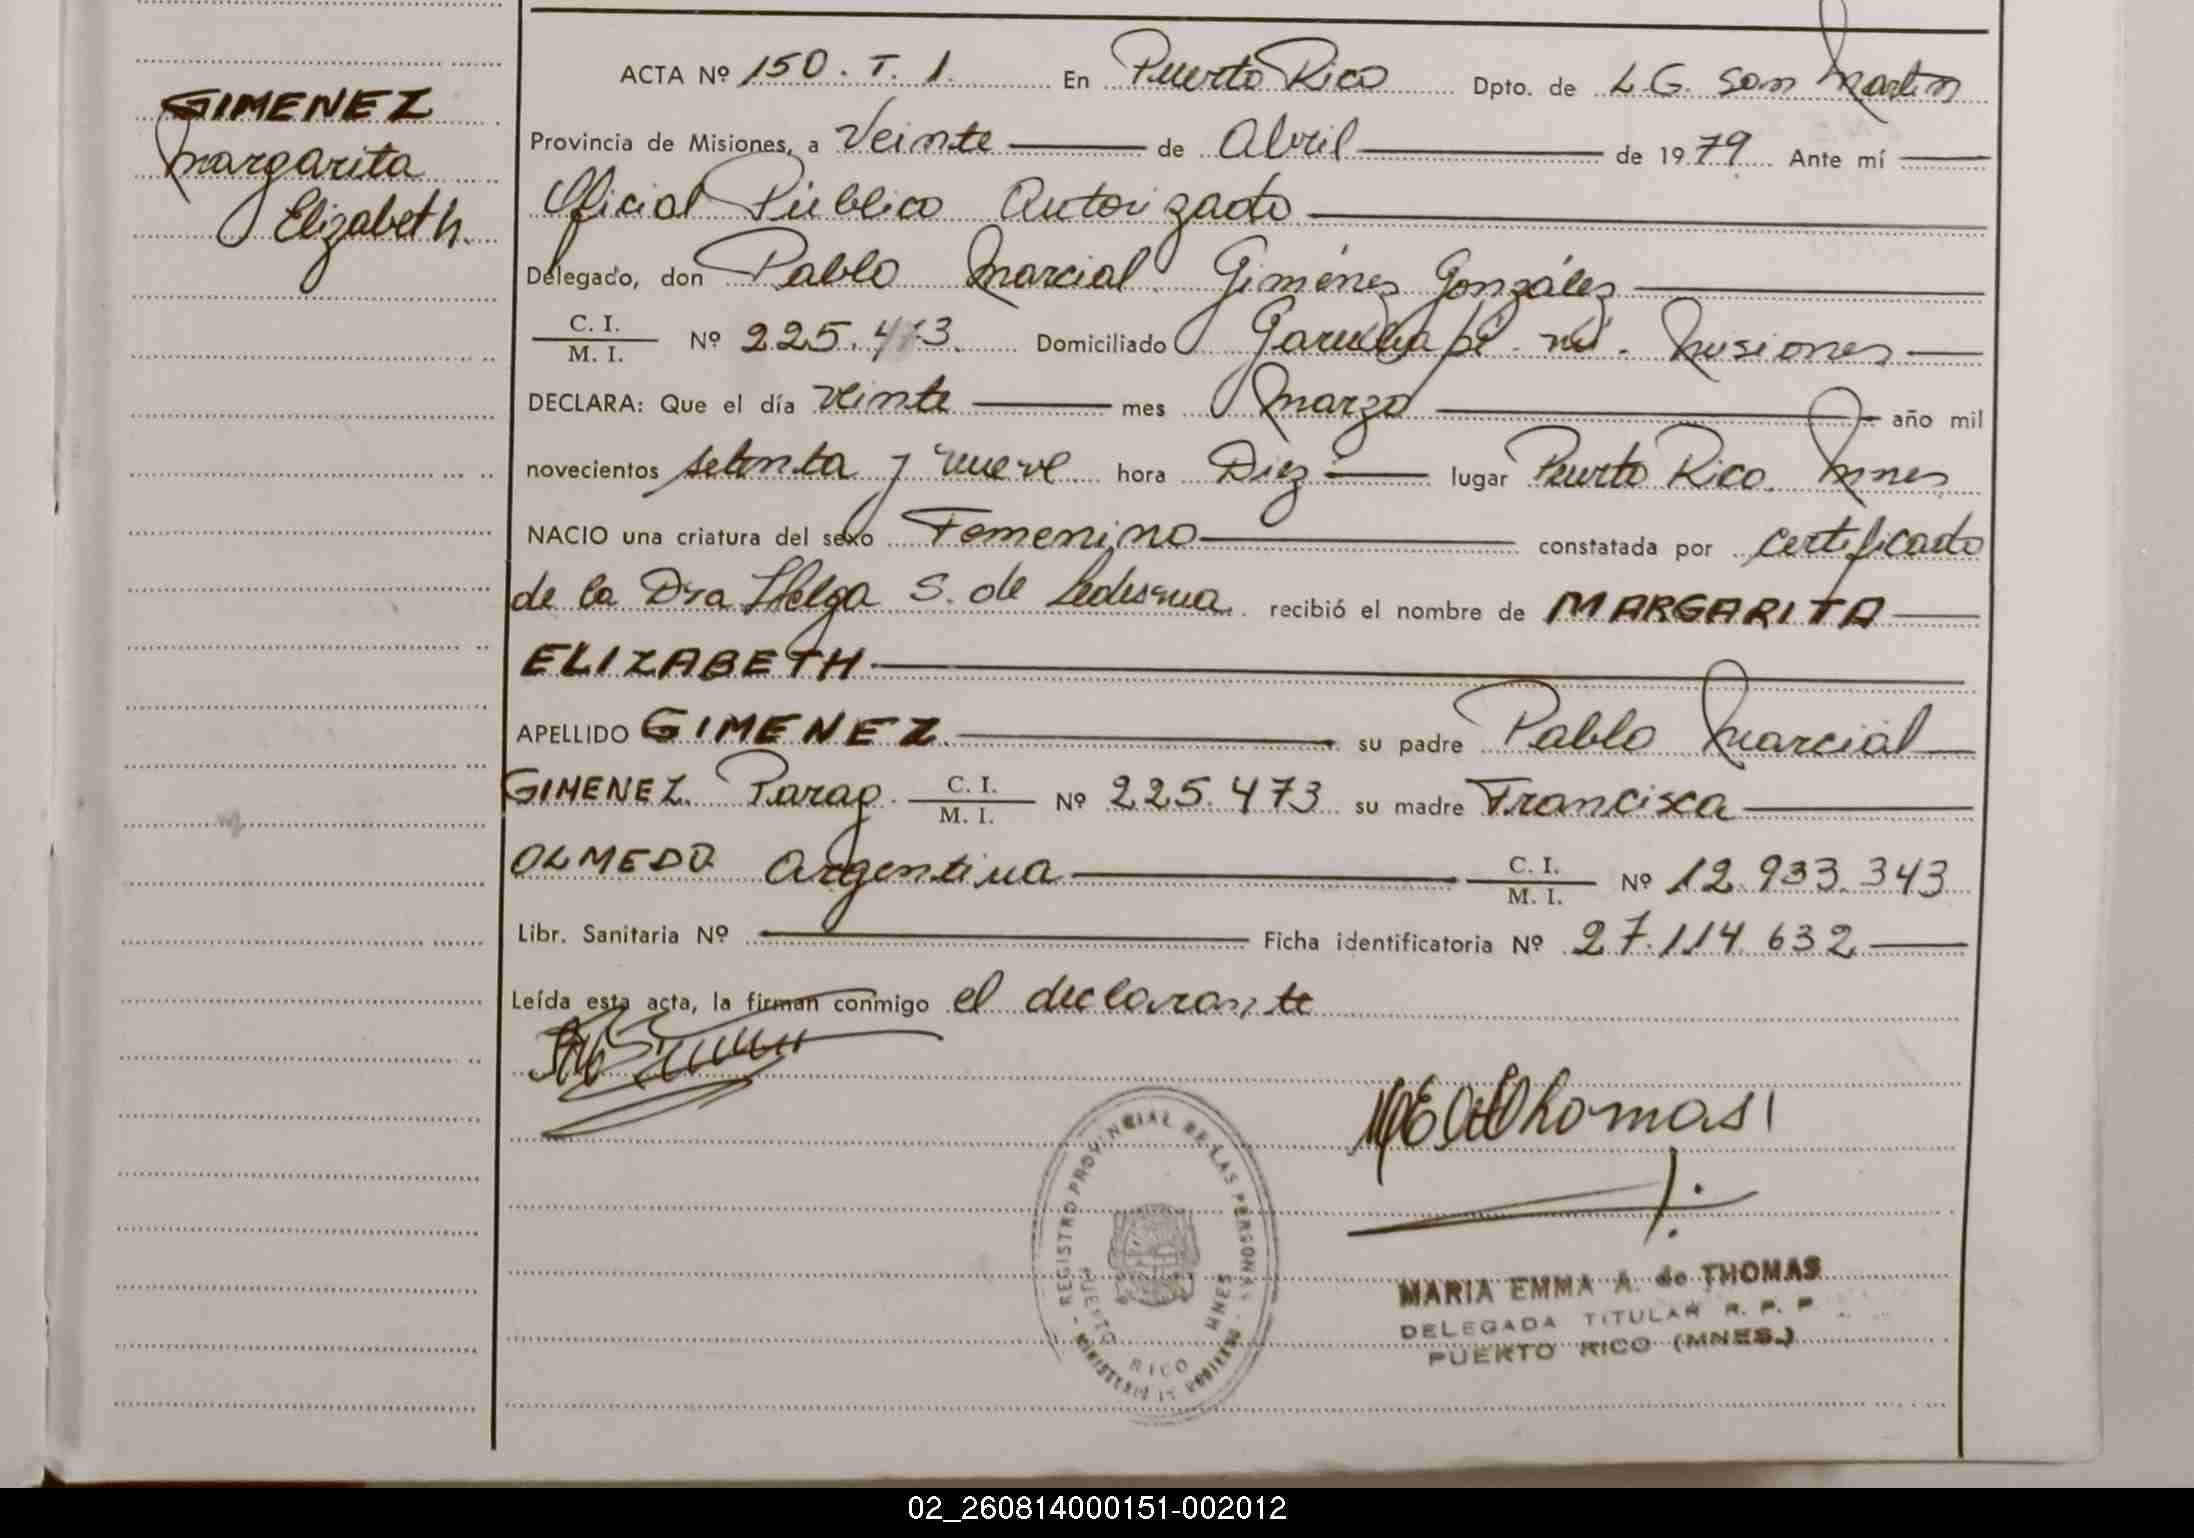 GIMENEZ
Margarita
Elizabeth.
ACTA Nº 150. T. 1. En Puerto Rico Dpto. de L.G. San Martin
Provincia de Misiones, a Veinte de Abril de 1979 Ante mí
Oficial Público Autorizado
Delegado, don Pablo Marcial Giménez González
C. I. / M. I. Nº 225.473. Domiciliado Garuhapé - mí. Misiones
DECLARA: Que el día veinte mes Marzo año mil
novecientos setenta y nueve hora Diez lugar Puerto Rico. Mnes
NACIO una criatura del sexo Femenino constatada por certificado
de la Dra Helga S. de Ledesma. recibió el nombre de MARGARITA
ELIZABETH
APELLIDO GIMENEZ su padre Pablo Marcial
GIMENEZ. Parag. C. I. / M. I. Nº 225.473 su madre Francisca
OLMEDO Argentina C. I. / M. I. Nº 12.933.343
Libr. Sanitaria Nº Ficha identificatoria Nº 27.114.632
Leída esta acta, la firman conmigo el declarante
MEAdeThomas
REGISTRO PROVINCIAL DE LAS PERSONAS
PUERTO RICO MNES
MINISTERIO DE GOBIERNO
MARIA EMMA A. de THOMAS
DELEGADA TITULAR R. P. P
PUERTO RICO (MNES.)
02_260814000151-002012